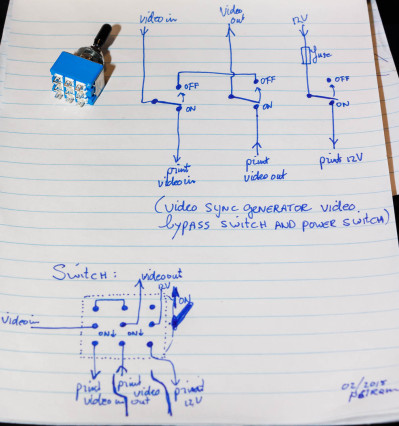 video in
video out
12V
fuse
OFF
OFF
OFF
ON
ON
ON
print
video in
print
video out
print 12V
(VIDEO SYNC GENERATOR VIDEO
BYPASS SWITCH AND POWER SWITCH)
SWITCH:
video out
12V
ON
video in
ON↓
ON↓
print
video in
print
video
out
print
12V
02/2015